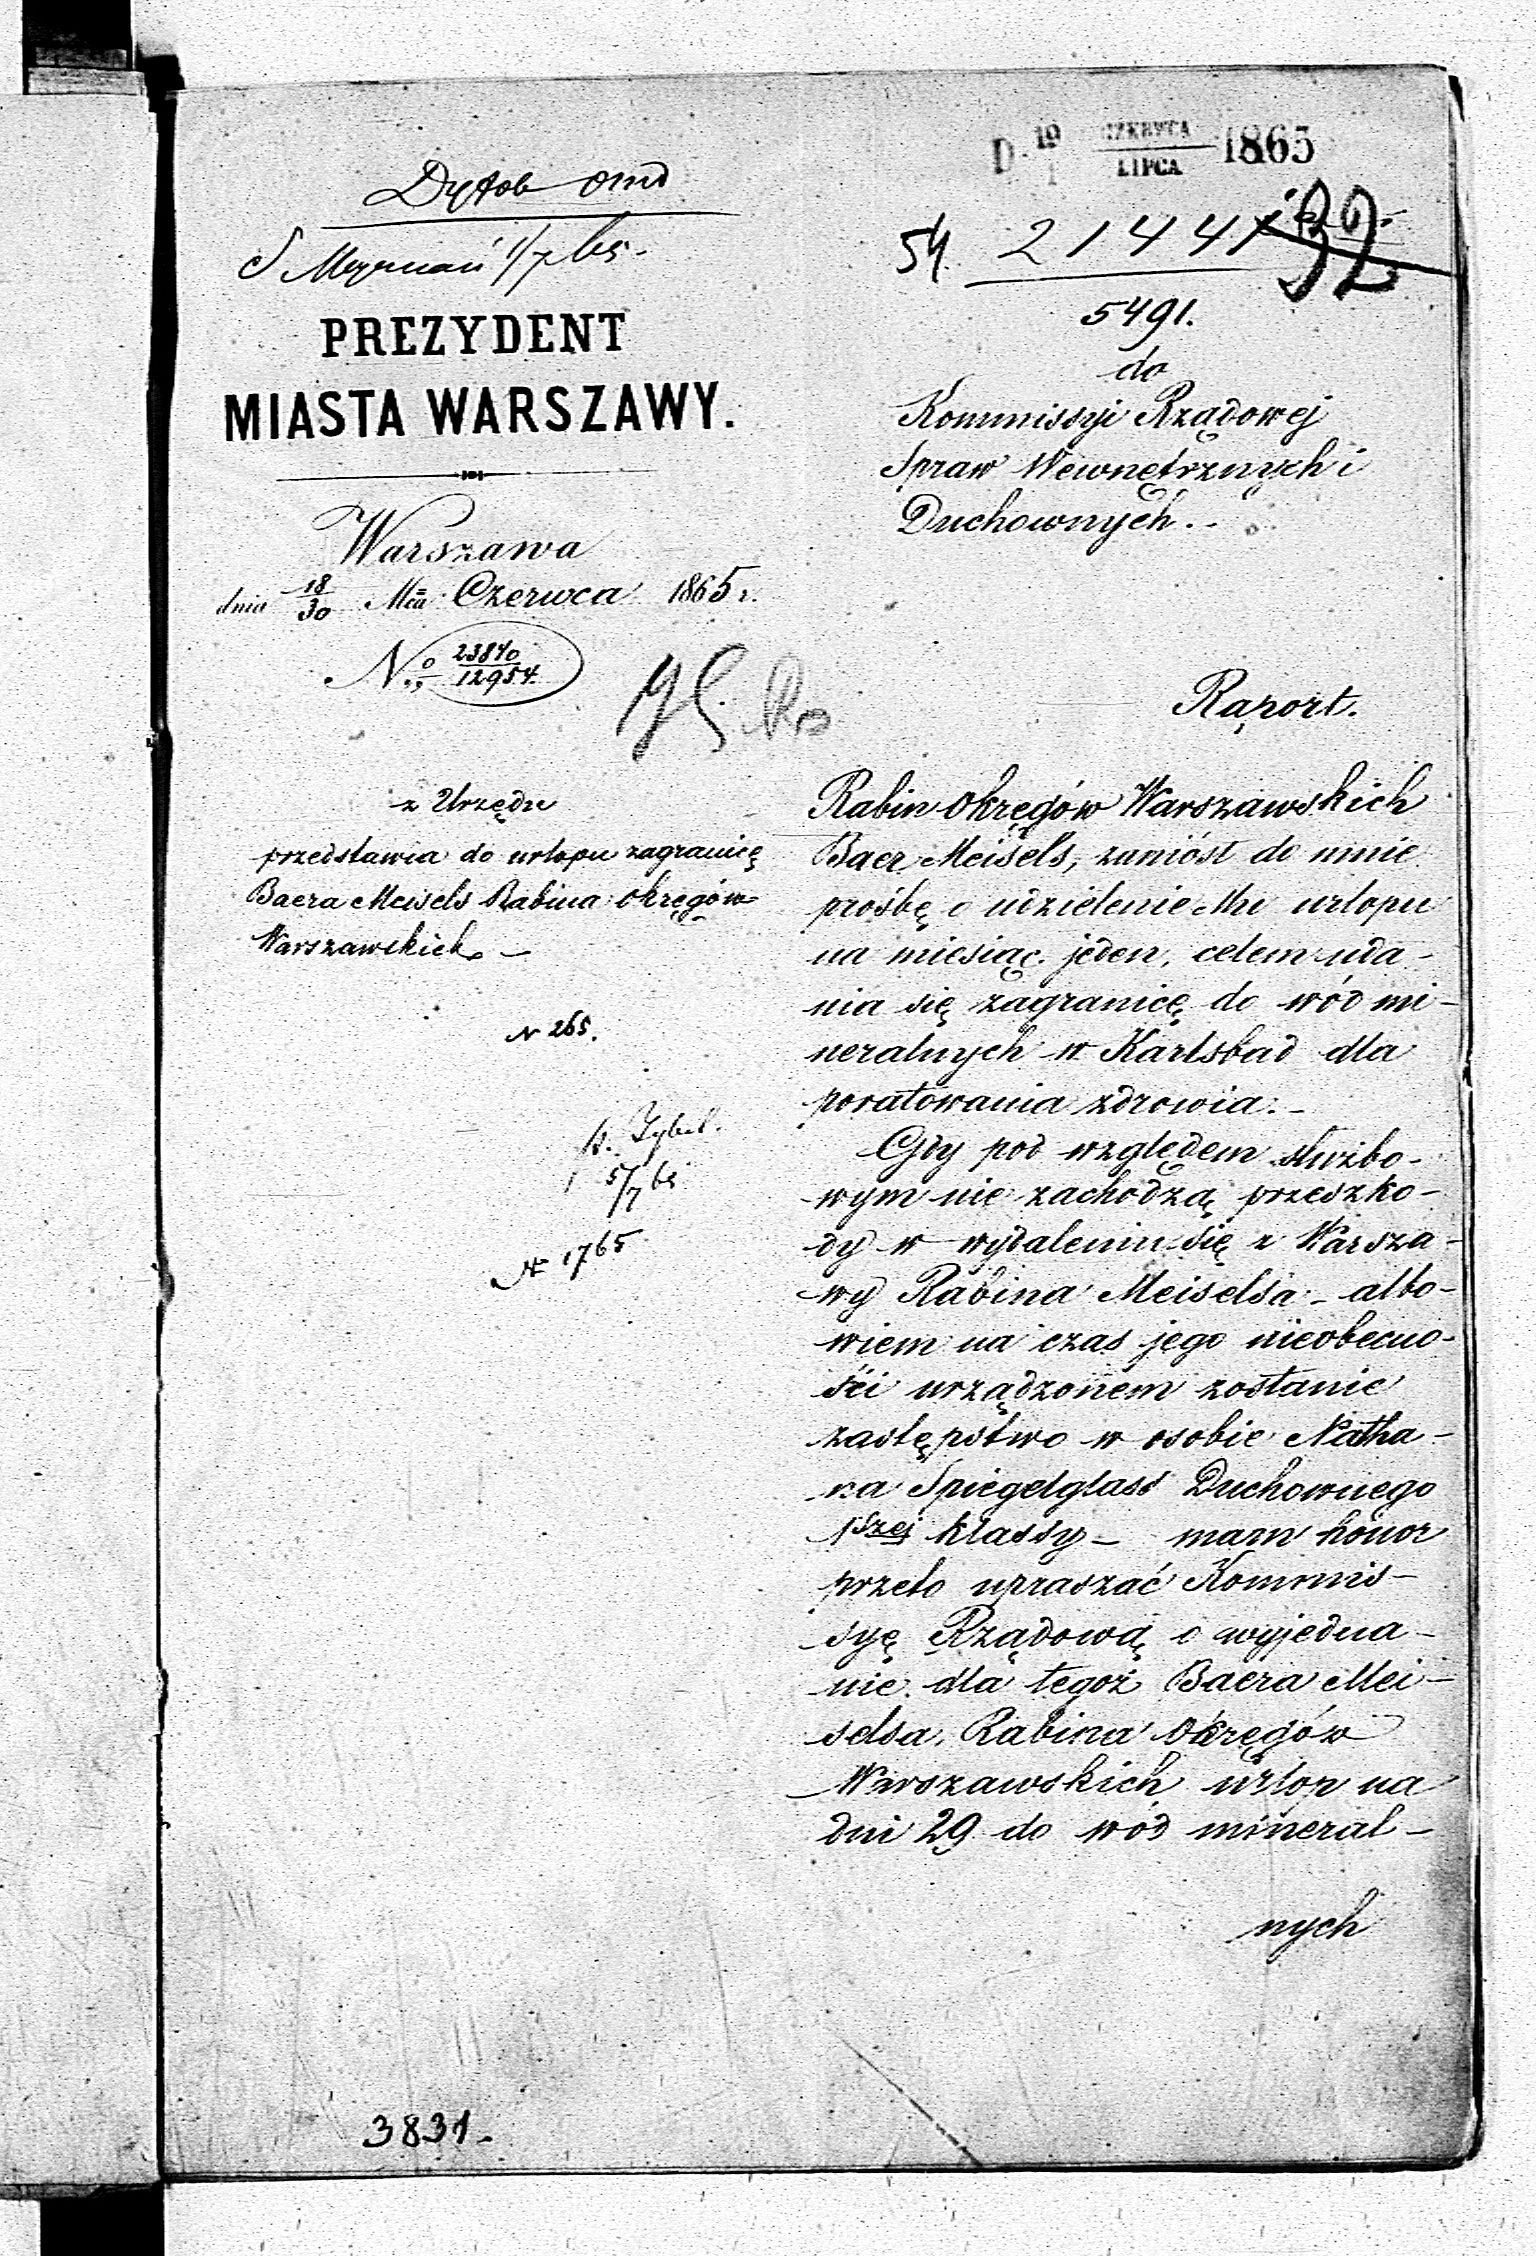 D. 19 CZERWCA 1865
1 LIPCA
21441
92
5491.
PREZYDENT
MIASTA WARSZAWY.
Warszawa
dnia 18/30 Mca Czerwca 1865 r.
No 23840
12954.
z Urzędu
przedstawia do urlopu zagranicę
Baera Meisels Rabina okręgów
Warszawskich. –
N 265.
5/7 65
N 1765
do
Kommissyi Rządowej
Spraw Wewnętrznych i
Duchownych. –
Raport.
Rabin okręgów Warszawskich
Baer Meisels, zaniósł do mnie
prośbę o udzielenie Mu urlopu
na miesiąc jeden, celem uda-
nia się zagranicę do wód mi-
neralnych w Karlsbad dla
poratowania zdrowia. –
Gdy pod względem służbo-
wym nie zachodzą przeszko-
dy w wydaleniu się z Warsza-
wy Rabina Meiselsa – albo-
wiem na czas jego nieobecno-
ści urządzonem zostanie
zastępstwo w osobie Natha-
na Spiegelglass Duchownego
1szej klassy – mam honor
przeto upraszać Kommis-
syę Rządową o wyjedna-
nie dla tegoż Baera Mei-
selsa, Rabina Okręgów
Warszawskich urlop na
dni 29 do wód mineral-
nych
3831.